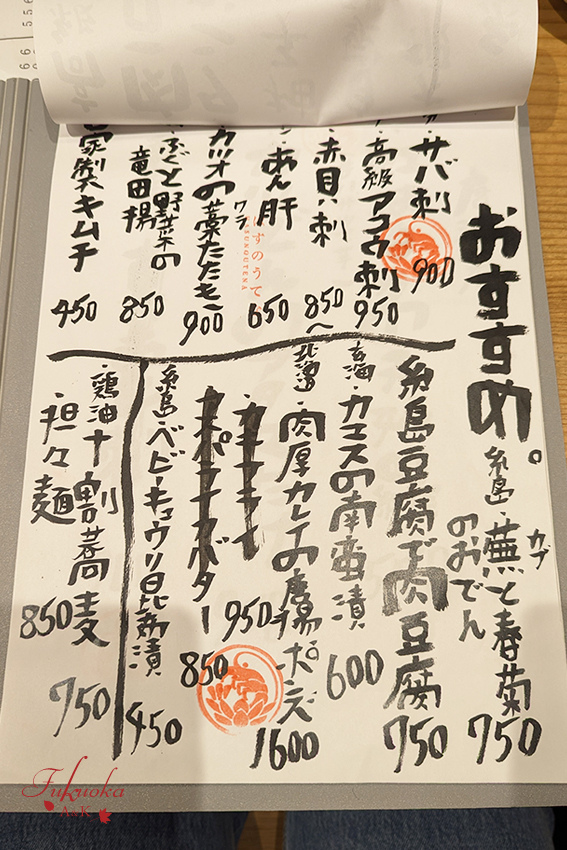 おすすめ。
サバ刺 900
高級アコウ刺 950
赤貝刺 850〜
あん肝 650
カツオの藁たたき 900
ワラ
ふぐと野菜の
竜田揚 850
家製キムチ 450
糸島・蕪と春菊
カブ
のおでん 750
糸島豆腐で肉豆腐 750
カマスの南蛮漬 600
北海道・肉厚カレイの唐揚 ポンズ 1600
カキフライ 950
850
糸島・ベビーキュウリ昆布漬 450
・鶏油十割蕎麦 750
・担々麺 850
はすのうてな
HASUNOUTENA
Fukuoka
A&K